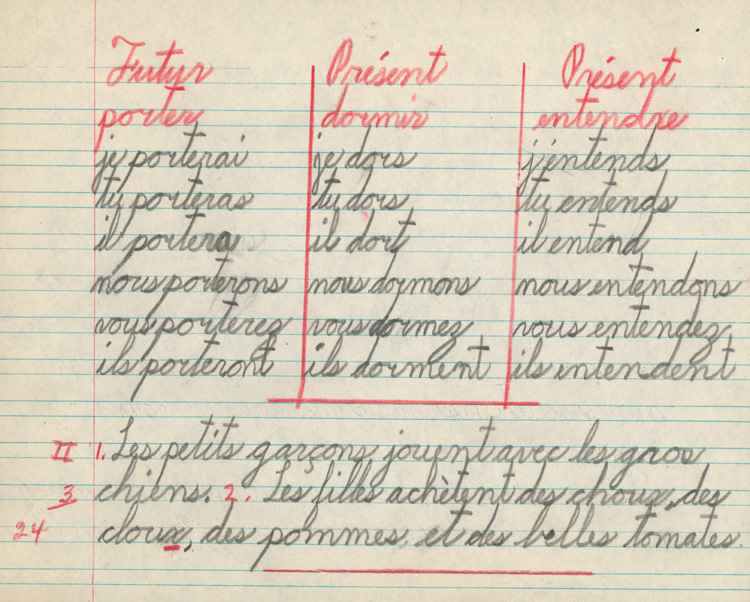 Futur Présent Présent
porter dormir entendre
je porterai je dors j'entends
tu porteras tu dors tu entends
il portera il dort il entend
nous porterons nous dormons nous entendons
vous porterez vous dormez vous entendez
ils porteront ils dorment ils entendent
II 1. Les petits garçons jouent avec les gros
3 chiens. 2. Les filles achètent des choux, des
24 cloux, des pommes, et des belles tomates.